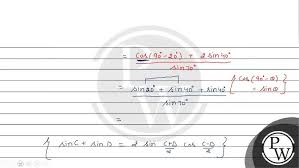 = cos(90°-20°) + 2 sin40°
sin70°
= sin20° + sin40° + sin40°
sin70°
{ cos(90°-θ)
= sinθ }
=
{ sinC + sinD = 2 sin C+D/2 cos C-D/2 }
P
W